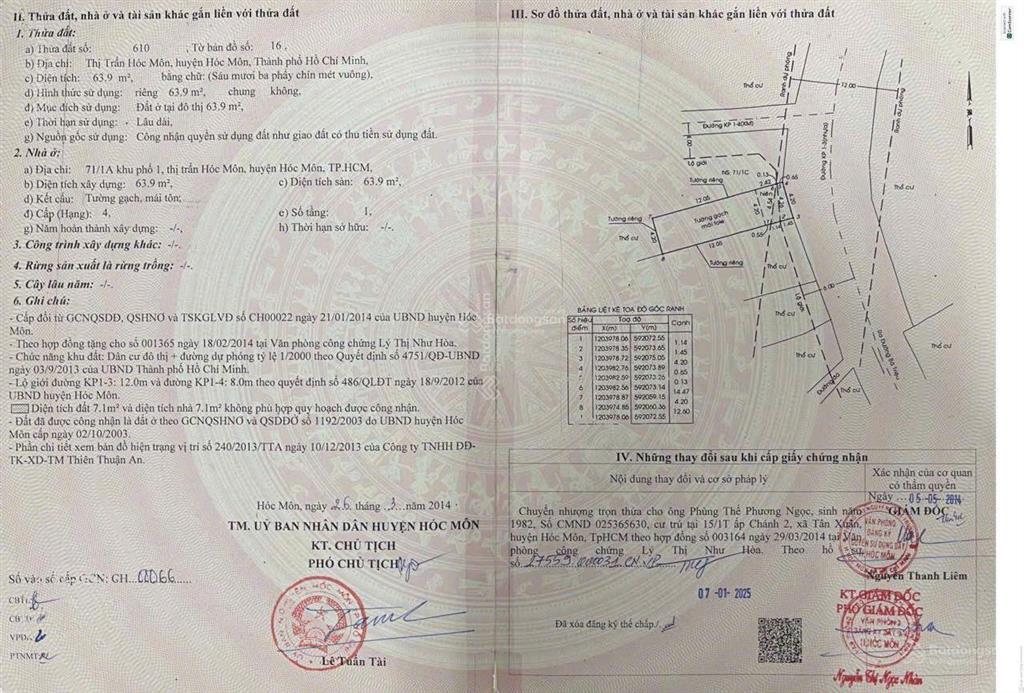 II. Thửa đất, nhà ở và tài sản khác gắn liền với thửa đất
1. Thửa đất:
a) Thửa đất số: 610 , Tờ bản đồ số: 16 ,
b) Địa chỉ: Thị Trấn Hóc Môn, huyện Hóc Môn, Thành phố Hồ Chí Minh,
c) Diện tích: 63.9 m², bằng chữ: (Sáu mươi ba phẩy chín mét vuông),
d) Hình thức sử dụng: riêng 63.9 m², chung không,
đ) Mục đích sử dụng: Đất ở tại đô thị 63.9 m²,
e) Thời hạn sử dụng: - Lâu dài,
g) Nguồn gốc sử dụng: Công nhận quyền sử dụng đất như giao đất có thu tiền sử dụng đất.
2. Nhà ở:
a) Địa chỉ: 71/1A khu phố 1, thị trấn Hóc Môn, huyện Hóc Môn, TP.HCM,
b) Diện tích xây dựng: 63.9 m², c) Diện tích sàn: 63.9 m²,
d) Kết cấu: Tường gạch, mái tôn,
đ) Cấp (Hạng): 4, e) Số tầng: 1,
g) Năm hoàn thành xây dựng: -/-, h) Thời hạn sở hữu: -/-.
3. Công trình xây dựng khác: -/-.
4. Rừng sản xuất là rừng trồng: -/-.
5. Cây lâu năm: -/-.
6. Ghi chú:
- Cấp đổi từ GCNQSDĐ, QSHNƠ và TSKGLVĐ số CH00022 ngày 21/01/2014 của UBND huyện Hóc
Môn.
- Theo hợp đồng tặng cho số 001365 ngày 18/02/2014 tại Văn phòng công chứng Lý Thị Như Hòa.
- Chức năng khu đất: Dân cư đô thị + đường dự phóng tỷ lệ 1/2000 theo Quyết định số 4751/QĐ-UBND
ngày 03/9/2013 của UBND Thành phố Hồ Chí Minh.
- Lộ giới đường KP1-3: 12.0m và đường KP1-4: 8.0m theo quyết định số 486/QLĐT ngày 18/9/2012 của
UBND huyện Hóc Môn.
Diện tích đất 7.1m² và diện tích nhà 7.1m² không phù hợp quy hoạch được công nhận.
- Đất đã được công nhận là đất ở theo GCNQSHNƠ và QSDĐƠ số 1192/2003 do UBND huyện Hóc
Môn cấp ngày 02/10/2003.
- Phần chi tiết xem bản đồ hiện trạng vị trí số 240/2013/TTA ngày 10/12/2013 của Công ty TNHH ĐĐ-
TK-XD-TM Thiên Thuận An.
Hóc Môn, ngày 26 tháng 3 năm 2014
TM. UỶ BAN NHÂN DÂN HUYỆN HÓC MÔN
KT. CHỦ TỊCH
PHÓ CHỦ TỊCH
Lê Tuấn Tài
Số vào sổ cấp GCN: CH 00066
VPĐK
PTNMT
III. Sơ đồ thửa đất, nhà ở và tài sản khác gắn liền với thửa đất
Thổ cư
Ranh dự phóng
12.00
Ranh dự phóng
Đường KP 1-4(BM)
8.00
Lộ giới
NS: 71/1C
0.13
0.65
2.42
Tường riêng
12.05
hiên
Thổ cư
Tường riêng
7
4.20
Tường gạch
mái tole
4.20
4.20
Thổ cư
8
12.05
0.55
1.14
1.45
Tường riêng
Thổ cư
6.00
Lộ giới
Thổ cư
Thổ cư
Thổ cư
Đi Đường Bà Triệu
Thổ cư
BẢNG LIỆT KÊ TỌA ĐỘ GÓC RANH
Số hiệu điểm Toạ độ Cạnh
X(m) Y(m)
1 1203978.06 592072.55
1.14
2 1203978.35 592073.65
1.45
3 1203978.72 592075.05
4.20
4 1203982.76 592073.89
0.65
5 1203982.59 592073.26
0.13
6 1203982.56 592073.14
14.47
7 1203978.87 592059.15
4.20
8 1203974.85 592060.36
12.60
1 1203978.06 592072.55
IV. Những thay đổi sau khi cấp giấy chứng nhận
Nội dung thay đổi và cơ sở pháp lý
Xác nhận của cơ quan
có thẩm quyền
Ngày 05-05-2014
GIÁM ĐỐC
Chuyển nhượng trọn thửa cho ông Phùng Thế Phương Ngọc, sinh năm
1982, Số CMND 025365630, cư trú tại 15/1T ấp Chánh 2, xã Tân Xuân,
huyện Hóc Môn, TpHCM theo hợp đồng số 003164 ngày 29/03/2014 tại Văn
phòng công chứng Lý Thị Như Hòa. Theo hồ sơ
số
Nguyễn Thanh Liêm
07-01-2025
Đã xóa đăng ký thế chấp
KT.GIÁM ĐỐC
PHÓ GIÁM ĐỐC
Nguyễn Thị Ngọc Nhân
Batdongsan
Batdongsan
CamScanner